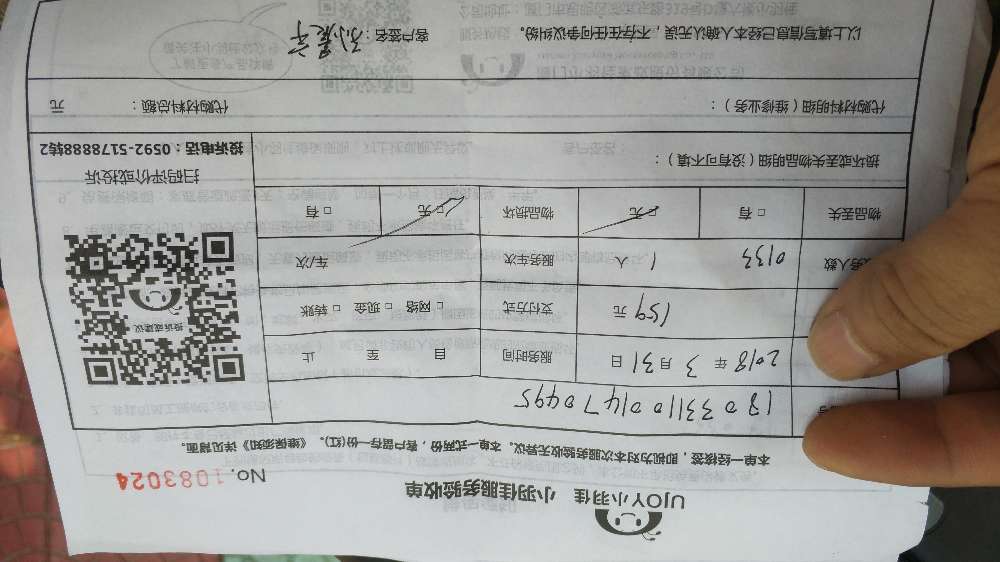 UJOY小羽佳 小羽佳服务验收单
No.1083024
本单一经核签，即视为对本次服务验收无异议。本单一式两份，客户留存一份(红)。《维保须知》详见背面。
号 1803311001470495
2018年3月31日 服务时间 自 至 止
159元 支付方式 □网络 □现金 □转账
务人数 0133 1人 服务车次 车/次
物品丢失 □有 □无 物品损坏 □无 □有
投诉或建议
扫码评价或投诉
投诉电话：0592-5178888转2
损坏或丢失物品明细（没有可不填）：
代购材料明细（维修业务）： 代购材料总额： 元
以上填写信息已经本人确认无误，不存在任何争议纠纷。 客户签名：